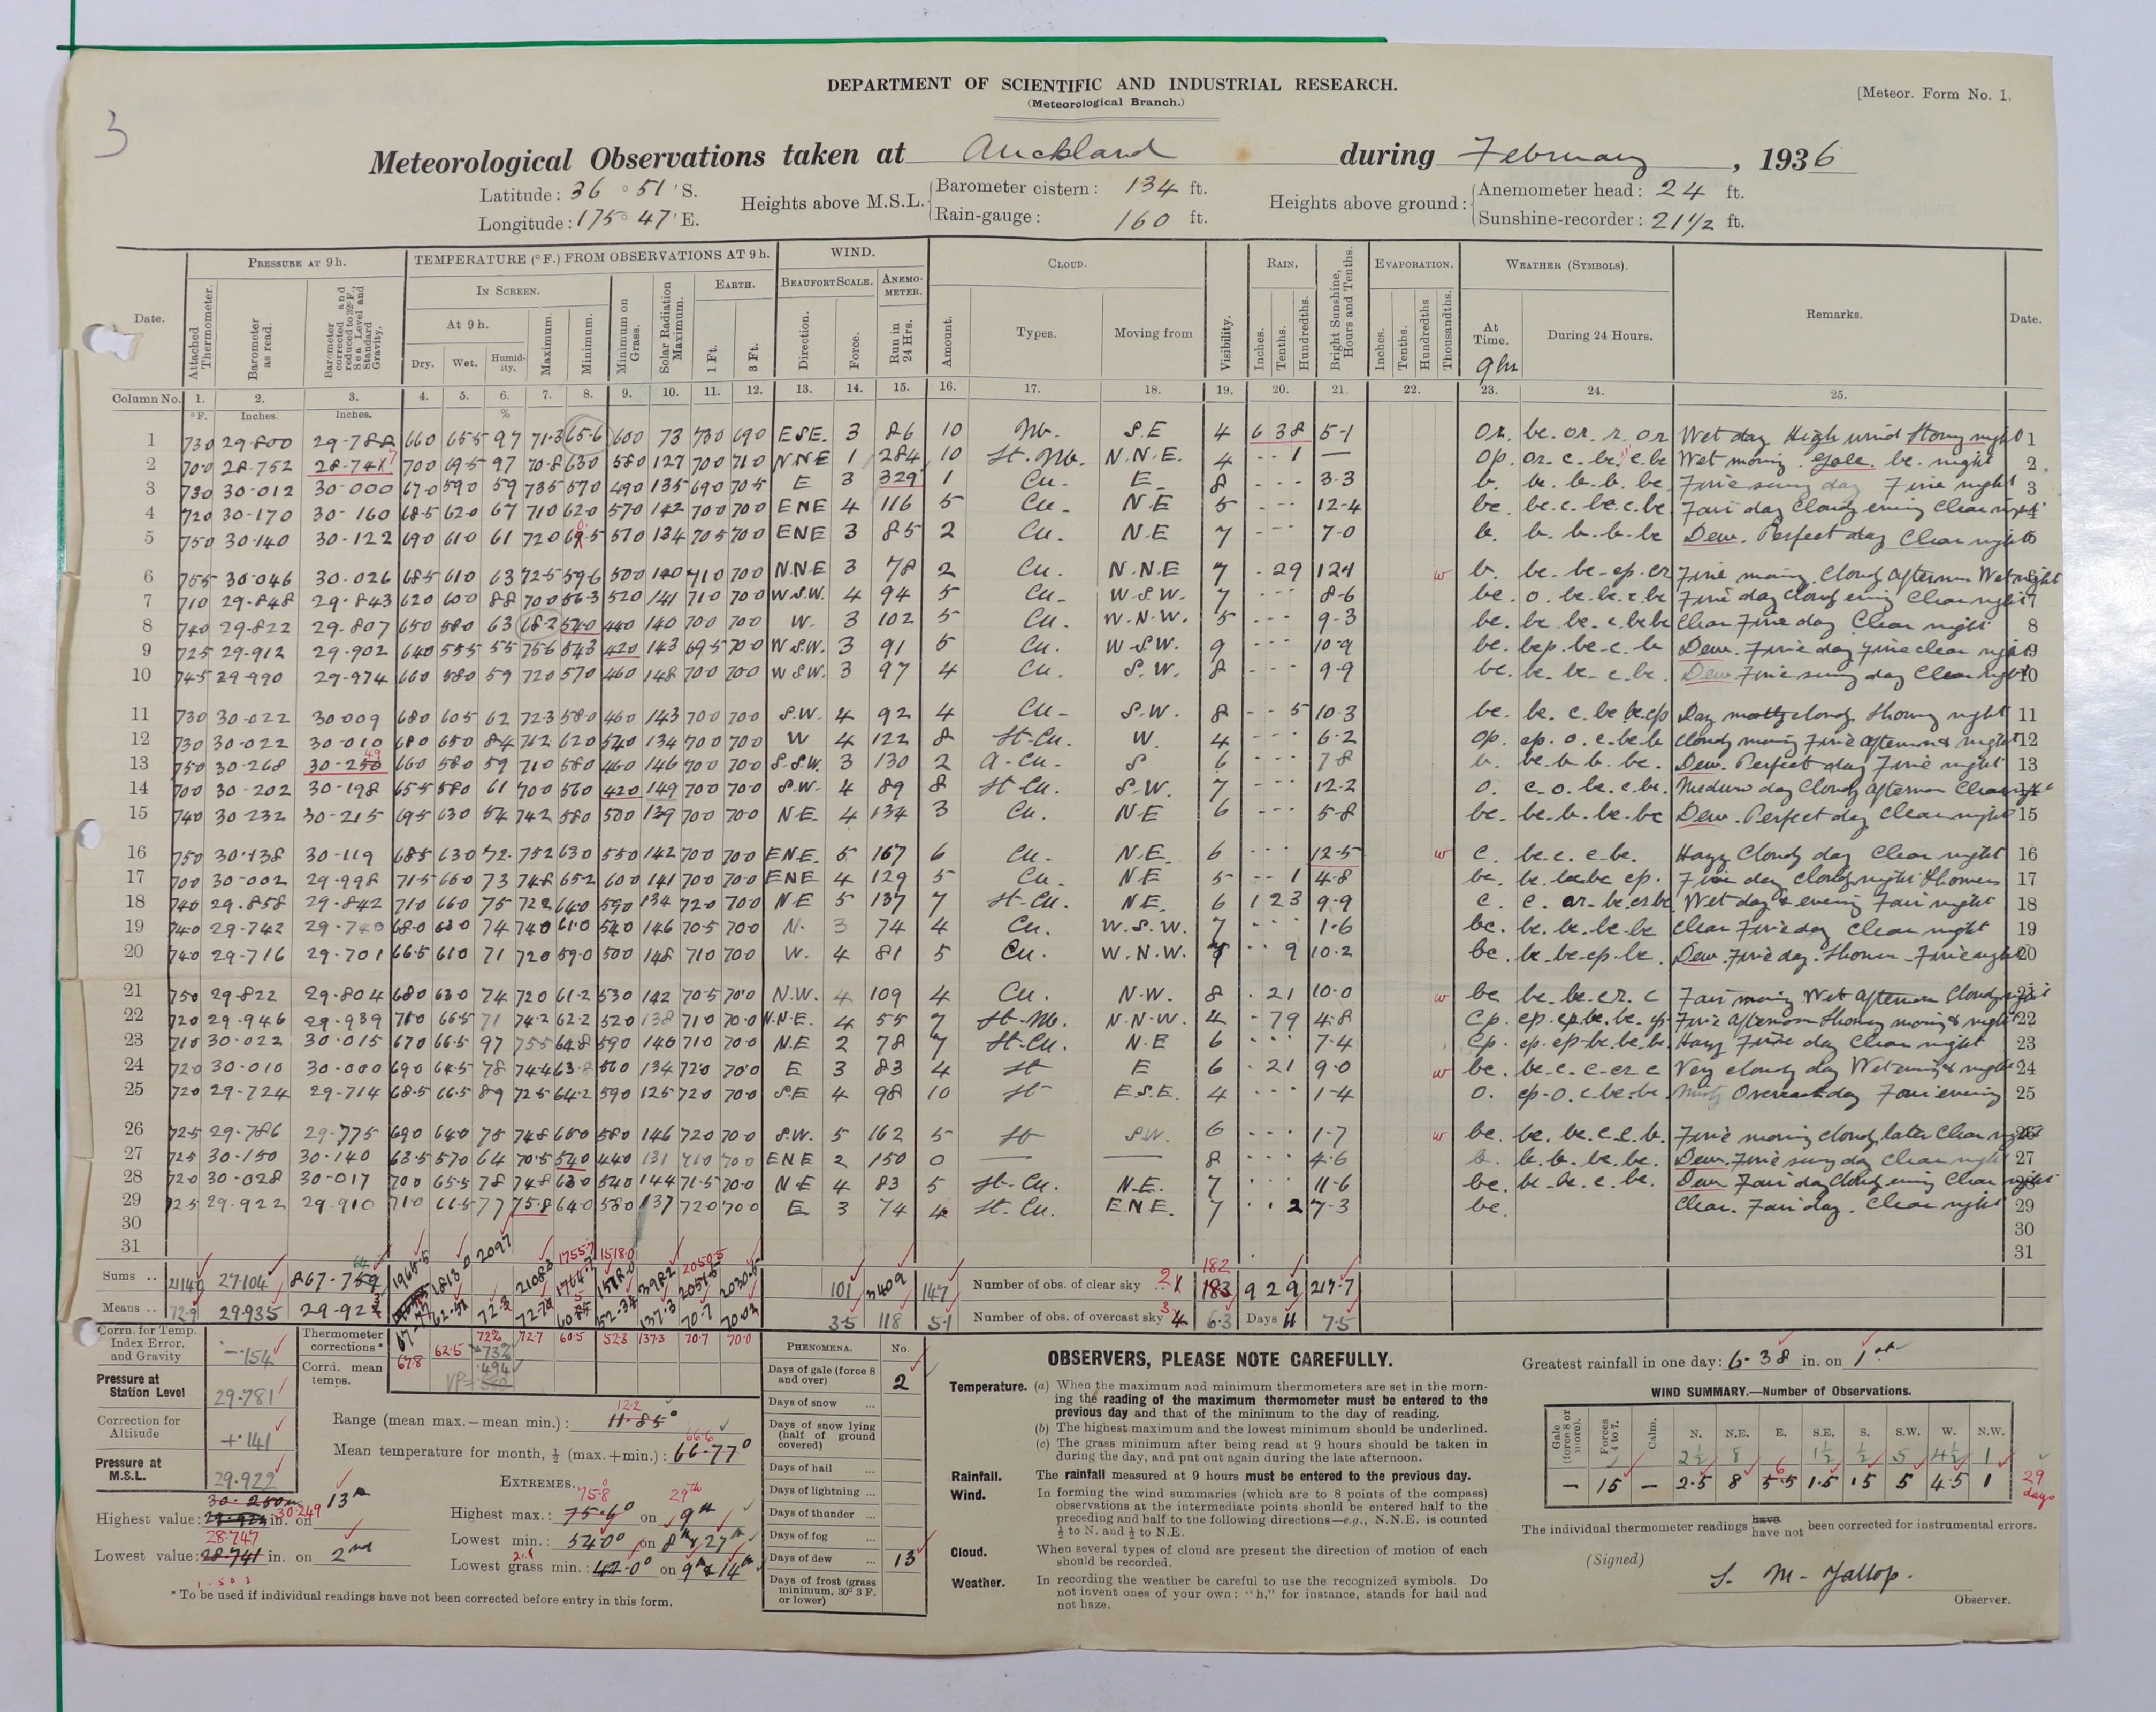 DEPARTMENT OF SCIENTIFIC AND INDUSTRIAL RESEARCH.
(Meteorological Branch.)
[Meteor. Form No. 1.
3
Meteorological Observations taken at Auckland during February, 1936
Latitude: 36° 51' S.
Longitude: 175° 47' E.
Heights above M.S.L. Barometer cistern: 134 ft.
Rain-gauge: 160 ft.
Heights above ground: Anemometer head: 24 ft.
Sunshine-recorder: 21½ ft.
Date. PRESSURE AT 9 h. TEMPERATURE (°F.) FROM OBSERVATIONS AT 9 h. WIND. CLOUD. Visibility. RAIN. Bright Sunshine, Hours and Tenths. EVAPORATION. WEATHER (SYMBOLS). Remarks. Date.
Attached Thermometer. Barometer as read. Barometer corrected and reduced to 32° F., Sea Level and Standard Gravity.
IN SCREEN. At 9 h. Dry. Wet. Humidity. Maximum. Minimum. Minimum on Grass. Solar Radiation Maximum. EARTH. 1 Ft. 3 Ft.
BEAUFORT SCALE. Direction. Force. ANEMOMETER. Run in 24 Hrs. Amount. Types. Moving from
Inches. Tenths. Hundredths. Inches. Tenths. Hundredths Thousandths. At Time. 9hr During 24 Hours.
Column No. 1. 2. 3. 4. 5. 6. 7. 8. 9. 10. 11. 12. 13. 14. 15. 16. 17. 18. 19. 20. 21. 22. 23. 24. 25.
°F. Inches. Inches. %
1 730 29·800 29·788 660 65·5 97 71·3 65·6 600 73 730 690 ESE. 3 86 10 Nb. S.E 4 6 3 8 5·1 or. bc. or. r. or Wet day High wind Stormy night 1
2 700 28·752 700 69·5 97 70·8 630 580 127 700 710 NNE 1 284 10 St. Nb. N.N.E. 4 - - 1 — op. or. c. bc. c. bc Wet morning. Gale. bc. night 2
3 730 30·012 30·000 670 590 59 735 570 490 135 690 70·5 E 3 329 1 Cu. E 8 - - - 3·3 b. bc. b. b. bc. Fine sunny day Fine night 3
4 720 30·170 30·160 68·5 620 67 710 620 570 142 700 700 ENE 4 116 5 Cu. N.E 5 - - - 12·4 bc. bc. c. bc. c. bc Fair day Cloudy evening Clear night
5 750 30·140 30·122 690 610 61 720 570 134 705 700 ENE 3 85 2 Cu. N.E 7 - - - 7·0 b. b. b. b. bc Dew. Perfect day Clear night 5
6 755 30·046 30·026 68·5 610 63 72·5 59·6 500 140 710 700 N.N.E 3 78 2 Cu. N.N.E 7 · 2 9 12·1 w b. bc. bc. cp. cr Fine morning. Cloudy afternoon Wet night
7 710 29·848 29·843 620 600 88 700 56·3 520 141 710 700 W.S.W. 4 94 5 Cu. W.S.W. 7 - - - 8·6 bc. o. bc. bc. c. bc Fine day cloudy evening Clear night 7
8 740 29·822 29·807 650 580 63 68·2 540 440 140 700 700 W. 3 102 5 Cu. W.N.W. 5 - - - 9·3 bc. bc. bc. c. bc bc Clear Fine day Clear night 8
9 725 29·912 29·902 640 555 55 756 543 420 143 69·5 700 W S.W. 3 91 5 Cu. W.S.W. 9 - - - 10·9 bc. bcp. bc. c. b Dew. Fine day Fine clear night 9
10 74·5 29·990 29·974 660 580 59 720 570 460 148 700 700 W S.W. 3 97 4 Cu. S.W. 8 - - - 9·9 bc. bc. bc. c. bc. Dew Fine sunny day Clear night 10
11 730 30·022 30·009 680 605 62 72·3 580 460 143 700 700 S.W. 4 92 4 Cu. S.W. 8 - - 5 10·3 bc. bc. c. bc bc. cp Day mostly cloudy. Showery night 11
12 730 30·022 30·010 680 650 84 712 620 540 134 700 700 W 4 122 8 St-Cu. W. 4 - - - 6·2 op. cp. o. c. bc. b Cloudy morning Fine afternoon & night 12
13 750 30·268 660 580 59 710 580 460 146 700 700 S.S.W. 3 130 2 A-Cu. S 6 - - - 7·8 b. bc. b. b. bc. Dew. Perfect day Fine night 13
14 700 30·202 30·198 65·5 580 61 700 560 420 149 700 700 S.W. 4 89 8 St-Cu. S.W. 7 - - - 12·2 o. c. o. bc. c. bc. Medium day Cloudy afternoon Clear night
15 740 30·232 30·215 69·5 630 54 742 580 500 139 700 700 N.E. 4 134 3 Cu. N.E 6 - - - 5·8 bc. bc. b. bc. bc Dew. Perfect day Clear night 15
16 750 30·138 30·119 68·5 630 72 752 630 550 142 700 700 ENE. 5 167 6 Cu. N.E. 6 - - - 12·5 w c. bc. c. c. bc. Hazy Cloudy day Clear night 16
17 700 30·002 29·998 71·5 660 73 748 65·2 600 141 700 700 ENE 4 129 5 Cu. N.E 5 - - 1 4·8 bc. bc. bc. bc cp. Fine day Cloudy night Showers 17
18 740 29·858 29·842 710 660 75 722 640 590 134 720 700 N.E 5 137 7 St-Cu. N.E. 6 1 2 3 9·9 c. c. or. bc. cr. bc Wet day & evening Fair night 18
19 740 29·742 29·740 680 630 74 740 610 540 146 70·5 700 N. 3 74 4 Cu. W.S.W. 7 - - - 1·6 bc. bc. bc. bc. bc Clear Fine day Clear night 19
20 740 29·716 29·701 66·5 610 71 720 590 500 148 710 700 W. 4 81 5 Cu. W.N.W. 9 · · 9 10·2 bc. bc. bc. cp. bc. Dew. Fine day. Shower. Fine night 20
21 750 29·822 29·804 680 630 74 720 61·2 530 142 70·5 70·0 N.W. 4 109 4 Cu. N.W. 8 · 2 1 10·0 w bc bc. bc. cr. c Fair morning Wet afternoon Cloudy night
22 720 29·946 29·939 710 66·5 71 74·2 62·2 520 138 710 70·0 N.N.E. 4 55 7 St-Nb. N.N.W. 4 · 7 9 4·8 cp. cp. cp. bc. bc. cp Fine afternoon Showery morning & night 22
23 710 30·022 30·015 670 66·5 97 755 648 590 146 710 700 N.E 2 78 7 St-Cu. N.E 6 · · · 7·4 cp. cp. cp. bc. bc. bc Hazy Fine day Clear night 23
24 720 30·010 30·000 690 64·5 78 744 63·8 560 134 720 70·0 E 3 83 4 St E 6 · 2 1 9·0 w bc. bc. c. c. cr c Very cloudy day Wet evening & night 24
25 720 29·724 29·714 68·5 66·5 89 72·5 64·2 590 125 720 700 S.E 4 98 10 St E.S.E. 4 · · · 1·4 o. cp. o. c. bc. bc. Misty Overcast day Fair evening 25
26 72·5 29·786 29·775 690 640 75 748 650 580 146 720 700 S.W. 5 162 5 St S.W. 6 - - - 1·7 w bc. bc. bc. c. c. b. Fine morning cloudy later Clear night
27 725 30·150 30·140 63·5 570 64 70·5 540 440 131 710 700 ENE 2 150 0 — — 8 - - - 4·6 b. b. b. bc. bc. Dew. Fine sunny day Clear night 27
28 720 30·028 30·017 700 65·5 78 748 630 540 144 71·5 700 N.E 4 83 5 St-Cu. N.E. 7 · · · 11·6 bc. bc. bc. c. bc. Dew Fair day Cloudy evening Clear night
29 72·5 29·922 29·910 710 66·5 77 75·8 640 580 137 720 700 E 3 74 4 St. Cu. E.N.E. 7 · · 2 7·3 bc. Clear. Fair day. Clear night 29
30 30
31 31
Sums .. 27·104 101 3409 147 Number of obs. of clear sky .. 182 183 9 2 9 217·7
Means .. 72·9 29·935 3·5 118 5·1 Number of overcast sky 6·3 Days 11 7·5
Corrn. for Temp., Index Error, and Gravity -·154
Pressure at Station Level 29·781
Correction for Altitude +·141
Pressure at M.S.L. 29·922
Thermometer corrections*
Corrd. mean temps. 67·8 62·5 72% 72·7 60·5 52·3 137·3 70·7 70·0
Range (mean max.—mean min.): 12·2 11·85°
Mean temperature for month, ½ (max.+min.): 66·6 66·77°
EXTREMES.
Highest max.: 75·8 75·6° on 29th 9th
Lowest min.: 54·0° on 8th & 27th
Lowest grass min.: 42·0° on 9th & 14th
Highest value: 30·249 in. on 13th
Lowest value: 28·747 28·741 in. on 2nd
* To be used if individual readings have not been corrected before entry in this form.
PHENOMENA. No.
Days of gale (force 8 and over) 2
Days of snow ...
Days of snow lying (half of ground covered)
Days of hail ...
Days of lightning ...
Days of thunder ...
Days of fog ...
Days of dew ... 13
Days of frost (grass minimum, 30° 3 F. or lower)
OBSERVERS, PLEASE NOTE CAREFULLY.
Temperature. (a) When the maximum and minimum thermometers are set in the morn-
ing the reading of the maximum thermometer must be entered to the
previous day and that of the minimum to the day of reading.
(b) The highest maximum and the lowest minimum should be underlined.
(c) The grass minimum after being read at 9 hours should be taken in
during the day, and put out again during the late afternoon.
Rainfall. The rainfall measured at 9 hours must be entered to the previous day.
Wind. In forming the wind summaries (which are to 8 points of the compass)
observations at the intermediate points should be entered half to the
preceding and half to the following directions—e.g., N.N.E. is counted
½ to N. and ½ to N.E.
Cloud. When several types of cloud are present the direction of motion of each
should be recorded.
Weather. In recording the weather be careful to use the recognized symbols. Do
not invent ones of your own: "h," for instance, stands for hail and
not haze.
Greatest rainfall in one day: 6·38 in. on 1st
WIND SUMMARY.—Number of Observations.
Gale (force 8 or more). Forces 4 to 7. Calm. N. N.E. E. S.E. S. S.W. W. N.W.
2½ 8 6 1½ ½ 5 4½ 1
— 15 — 2·5 8 5·5 1·5 ·5 5 4·5 1 29 days
The individual thermometer readings have have not been corrected for instrumental errors.
(Signed) S. M. Jallop.
Observer.